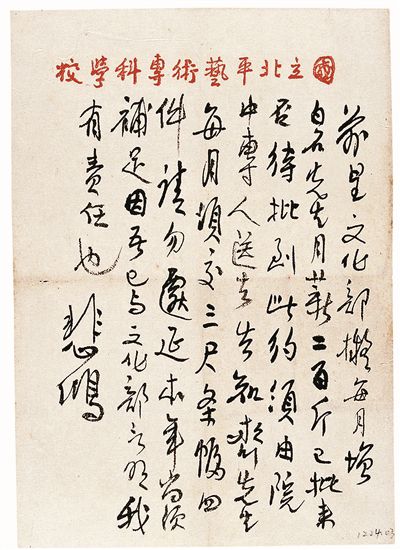 國立北平藝術專科學校
前呈文化部擬每月增
白石先生月薪二百斤已批来
否待批到此約須由院
中專人送去告知齊先生
每月須交三尺条幅四
件請勿遷延本年尚須
補足因吾已与文化部言明我
有責任也
悲鴻